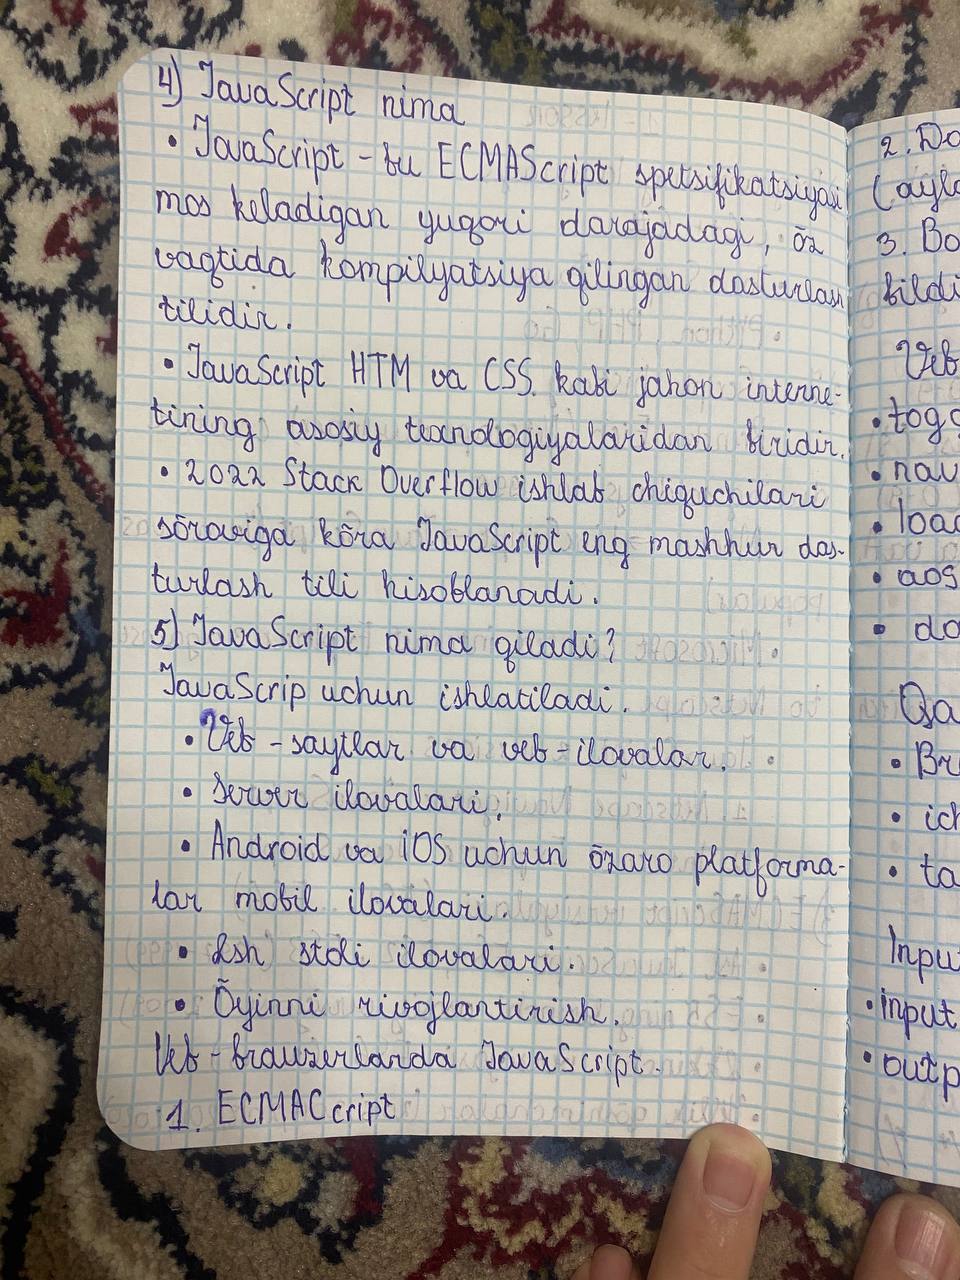 4) JavaScript nima
• JavaScript - bu ECMAScript spetsifikatsiyasi
mos keladigan yuqori darajadagi, õz
vaqtida kompilyatsiya qilingan dasturlash
tilidir.
• JavaScript HTM va CSS. kabi jahon interne-
tining asosiy texnologiyalaridan biridir.
• 2022 Stack Overflow ishlab chiquchilari
sõroviga kõra JavaScript eng mashhur das-
turlash tili hisoblanadi.
5) JavaScript nima qiladi?
JavaScrip uchun ishlatiladi.
• Veb - saytlar va veb - ilovalar.
• Server ilovalari.
• Android va iOS uchun õzaro platforma-
lar mobil ilovalari.
• Ish stoli ilovalari.
• Õyinni rivojlantirish.
Veb - brauzerlarda JavaScript.
1. ECMACcript
2. Do
(ayla
3. Bo
bildi
Veb
• togg
• nav
• load
• aos
• do
Qa
• Br
• ich
• ta
Inpu
• input
• outp